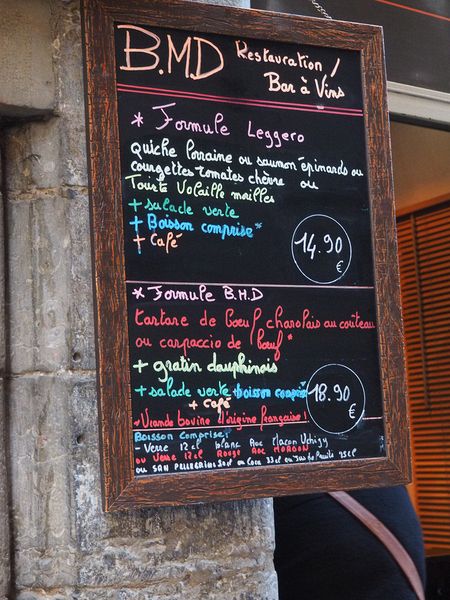 B.M.D Restauration /
Bar à Vins
* Formule Leggero
Quiche lorraine ou saumon épinards ou
courgettes tomates chèvre ou
Tourte Volaille morilles
+ salade verte
+ Boisson comprise*
+ Café
14.90
€
* Formule B.M.D
tartare de Bœuf charolais au couteau
ou carpaccio de bœuf *
+ gratin dauphinois
+ salade verte + boisson comprise
+ Café
18.90
€
*Viande bovine d'origine française !
Boisson Comprise:
- Verre 12cl blanc AOC Macon Uchizy
ou Verre 12cl Rouge AOC MORGON
ou SAN PELLEGRINO 50cl ou Coca 33cl ou Jus de Fruits 25cl